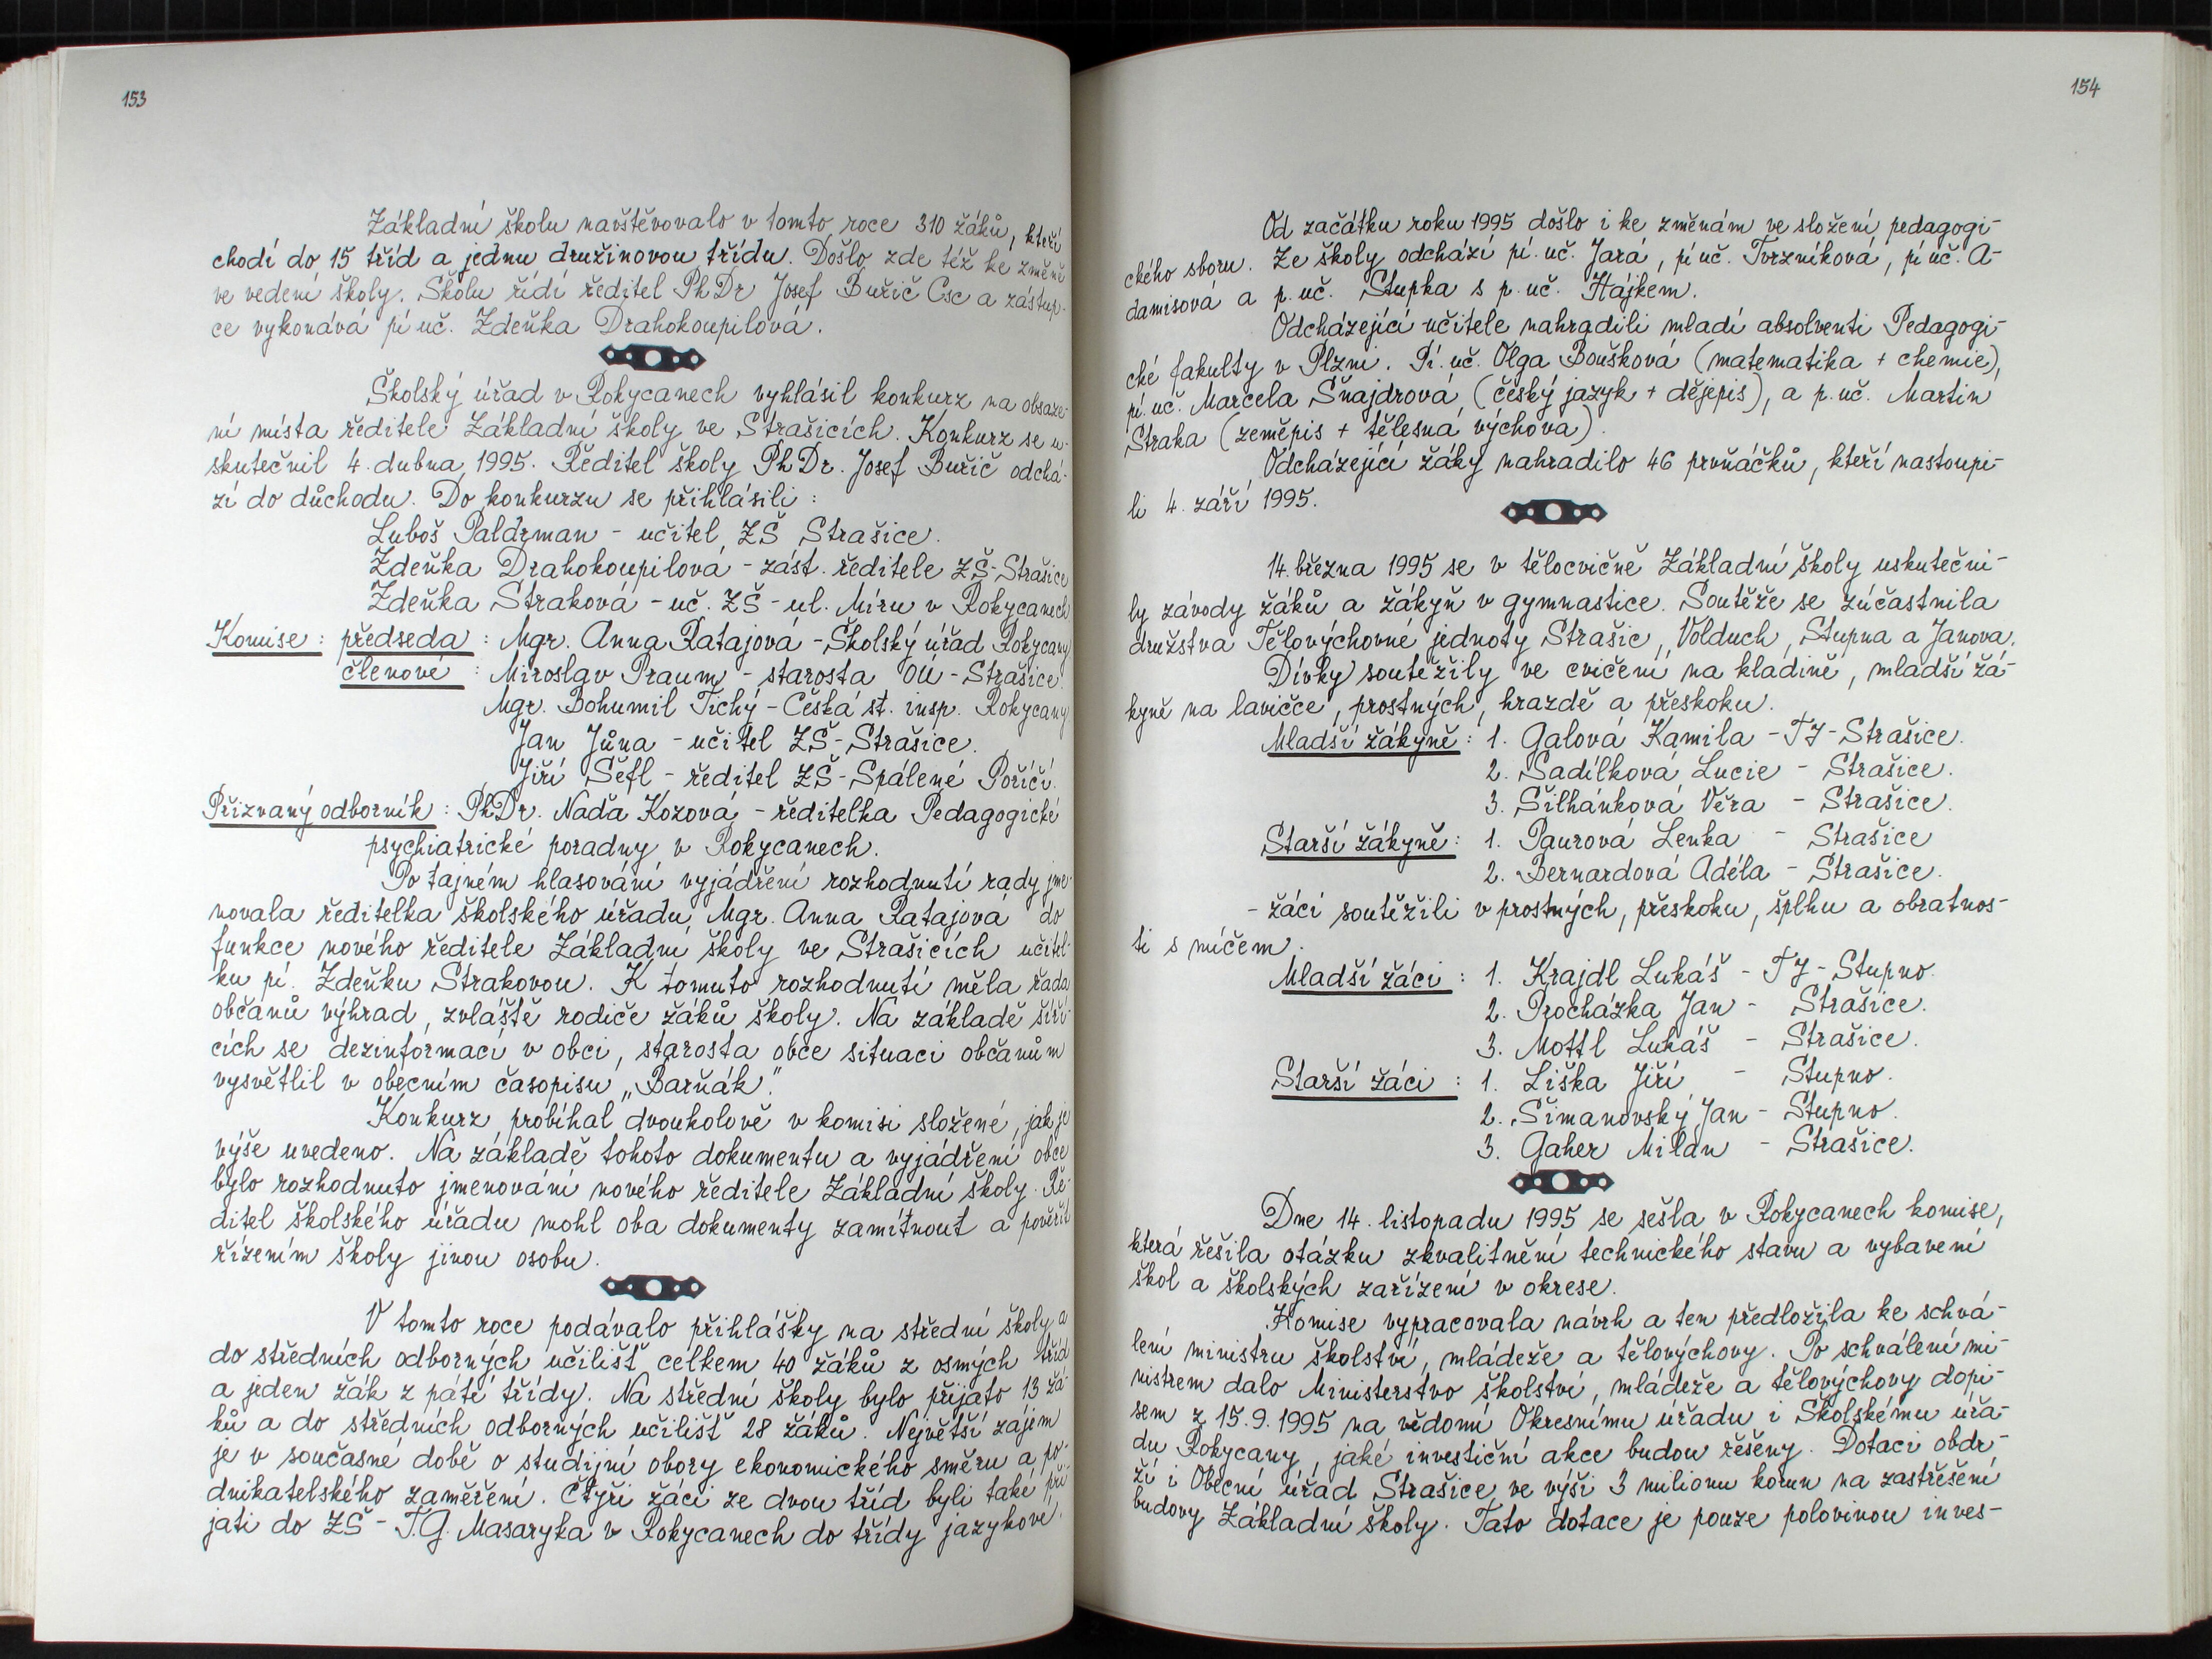 153
Základní školu navštěvovalo v tomto roce 310 žáků, kteří
chodí do 15 tříd a jednu družinovou třídu. Došlo zde též ke změně
ve vedení školy. Školu řídí ředitel PhDr Josef Buřič Csc a zástup-
ce vykonává pí uč. Zdeňka Drahokoupilová.
Školský úřad v Rokycanech vyhlásil konkurz na obsaze-
ní místa ředitele Základní školy ve Strašicích. Konkurz se u-
skutečnil 4. dubna 1995. Ředitel školy PhDr. Josef Buřič odchá-
zí do důchodu. Do konkurzu se přihlásili :
Luboš Paldrman - učitel ZŠ Strašice.
Zdeňka Drahokoupilová - zást. ředitele ZŠ-Strašice
Zdeňka Straková - uč. ZŠ - ul. Míru v Rokycanech
Komise : předseda : Mgr. Anna Ratajová - Školský úřad Rokycany
členové : Miroslav Praum - starosta OÚ - Strašice
Mgr. Bohumil Tichý - Česká št. insp. Rokycany
Jan Jůna - učitel ZŠ - Strašice.
Jiří Šefl - ředitel ZŠ - Spálené Poříčí.
Přizvaný odborník : PhDr. Naďa Kozová - ředitelka Pedagogické
psychiatrické poradny v Rokycanech.
Po tajném hlasování vyjádření rozhodnutí rady jme-
novala ředitelka školského úřadu, Mgr. Anna Ratajová do
funkce nového ředitele Základní školy ve Strašicích učitel-
ku pí. Zdeňku Strakovou. K tomuto rozhodnutí měla řada
občanů výhrad, zvláště rodiče žáků školy. Na základě šíří-
cích se dezinformací v obci, starosta obce situaci občanům
vysvětlil v obecním časopisu „Barňák".
Konkurz probíhal dvoukolově v komisi složené, jak je
výše uvedeno. Na základě tohoto dokumentu a vyjádření obce
bylo rozhodnuto jmenování nového ředitele Základní školy. Ře-
ditel školského úřadu mohl oba dokumenty zamítnout a pověřit
řízením školy jinou osobu.
V tomto roce podávalo přihlášky na střední školy a
do středních odborných učilišť celkem 40 žáků z osmých tříd
a jeden žák z páté třídy. Na střední školy bylo přijato 13 žá-
ků a do středních odborných učilišť 28 žáků. Největší zájem
je v současné době o studijní obory ekonomického směru a po-
dnikatelského zaměření. Čtyři žáci ze dvou tříd byli také při-
jati do ZŠ - T.G. Masaryka v Rokycanech do třídy jazykové.
154
Od začátku roku 1995 došlo i ke změnám ve složení pedagogi-
ckého sboru. Ze školy odchází pí. uč. Jará, pí uč. Tvrzníková, pí uč. A-
damisová a p. uč. Stupka s p. uč. Hájkem.
Odcházející učitele nahradili mladí absolventi Pedagogi-
cké fakulty v Plzni. Pí. uč. Olga Boušková (matematika + chemie),
pí. uč. Marcela Šnajdrová (český jazyk + dějepis), a p. uč. Martin
Straka (zeměpis + tělesná výchova).
Odcházející žáky nahradilo 46 prvňáčků, kteří nastoupi-
li 4. září 1995.
14. března 1995 se v tělocvičně Základní školy uskuteční-
ly závody žáků a žákyň v gymnastice. Soutěže se zúčastnila
družstva Tělovýchovné jednoty Strašic, Volduch, Stupna a Janova.
Dívky soutěžily ve cvičení na kladině, mladší žá-
kyně na lavičce, prostných, hrazdě a přeskoku.
Mladší žákyně : 1. Galová Kamila - TJ - Strašice.
2. Sadílková Lucie - Strašice.
3. Šilhánková Věra - Strašice.
Starší žákyně : 1. Paurová Lenka - Strašice
2. Bernardová Adéla - Strašice.
- žáci soutěžili v prostných, přeskoku, šplhu a obratnos-
ti s míčem.
Mladší žáci : 1. Krajdl Lukáš - TJ - Stupno.
2. Procházka Jan - Strašice.
3. Mottl Lukáš - Strašice.
Starší žáci : 1. Liška Jiří - Stupno.
2. Šimanovský Jan - Stupno.
3. Gaher Milan - Strašice.
Dne 14. listopadu 1995 se sešla v Rokycanech komise,
která řešila otázku zkvalitnění technického stavu a vybavení
škol a školských zařízení v okrese.
Komise vypracovala návrh a ten předložila ke schvá-
lení ministru školství, mládeže a tělovýchovy. Po schválení mi-
nistrem dalo Ministerstvo školství, mládeže a tělovýchovy dopi-
sem z 15.9.1995 na vědomí Okresnímu úřadu i Školskému úřa-
du Rokycany, jaké investiční akce budou řešeny. Dotaci obdr-
ží i Obecní úřad Strašice ve výši 3 milionu korun na zastřešení
budovy Základní školy. Tato dotace je pouze polovinou inves-